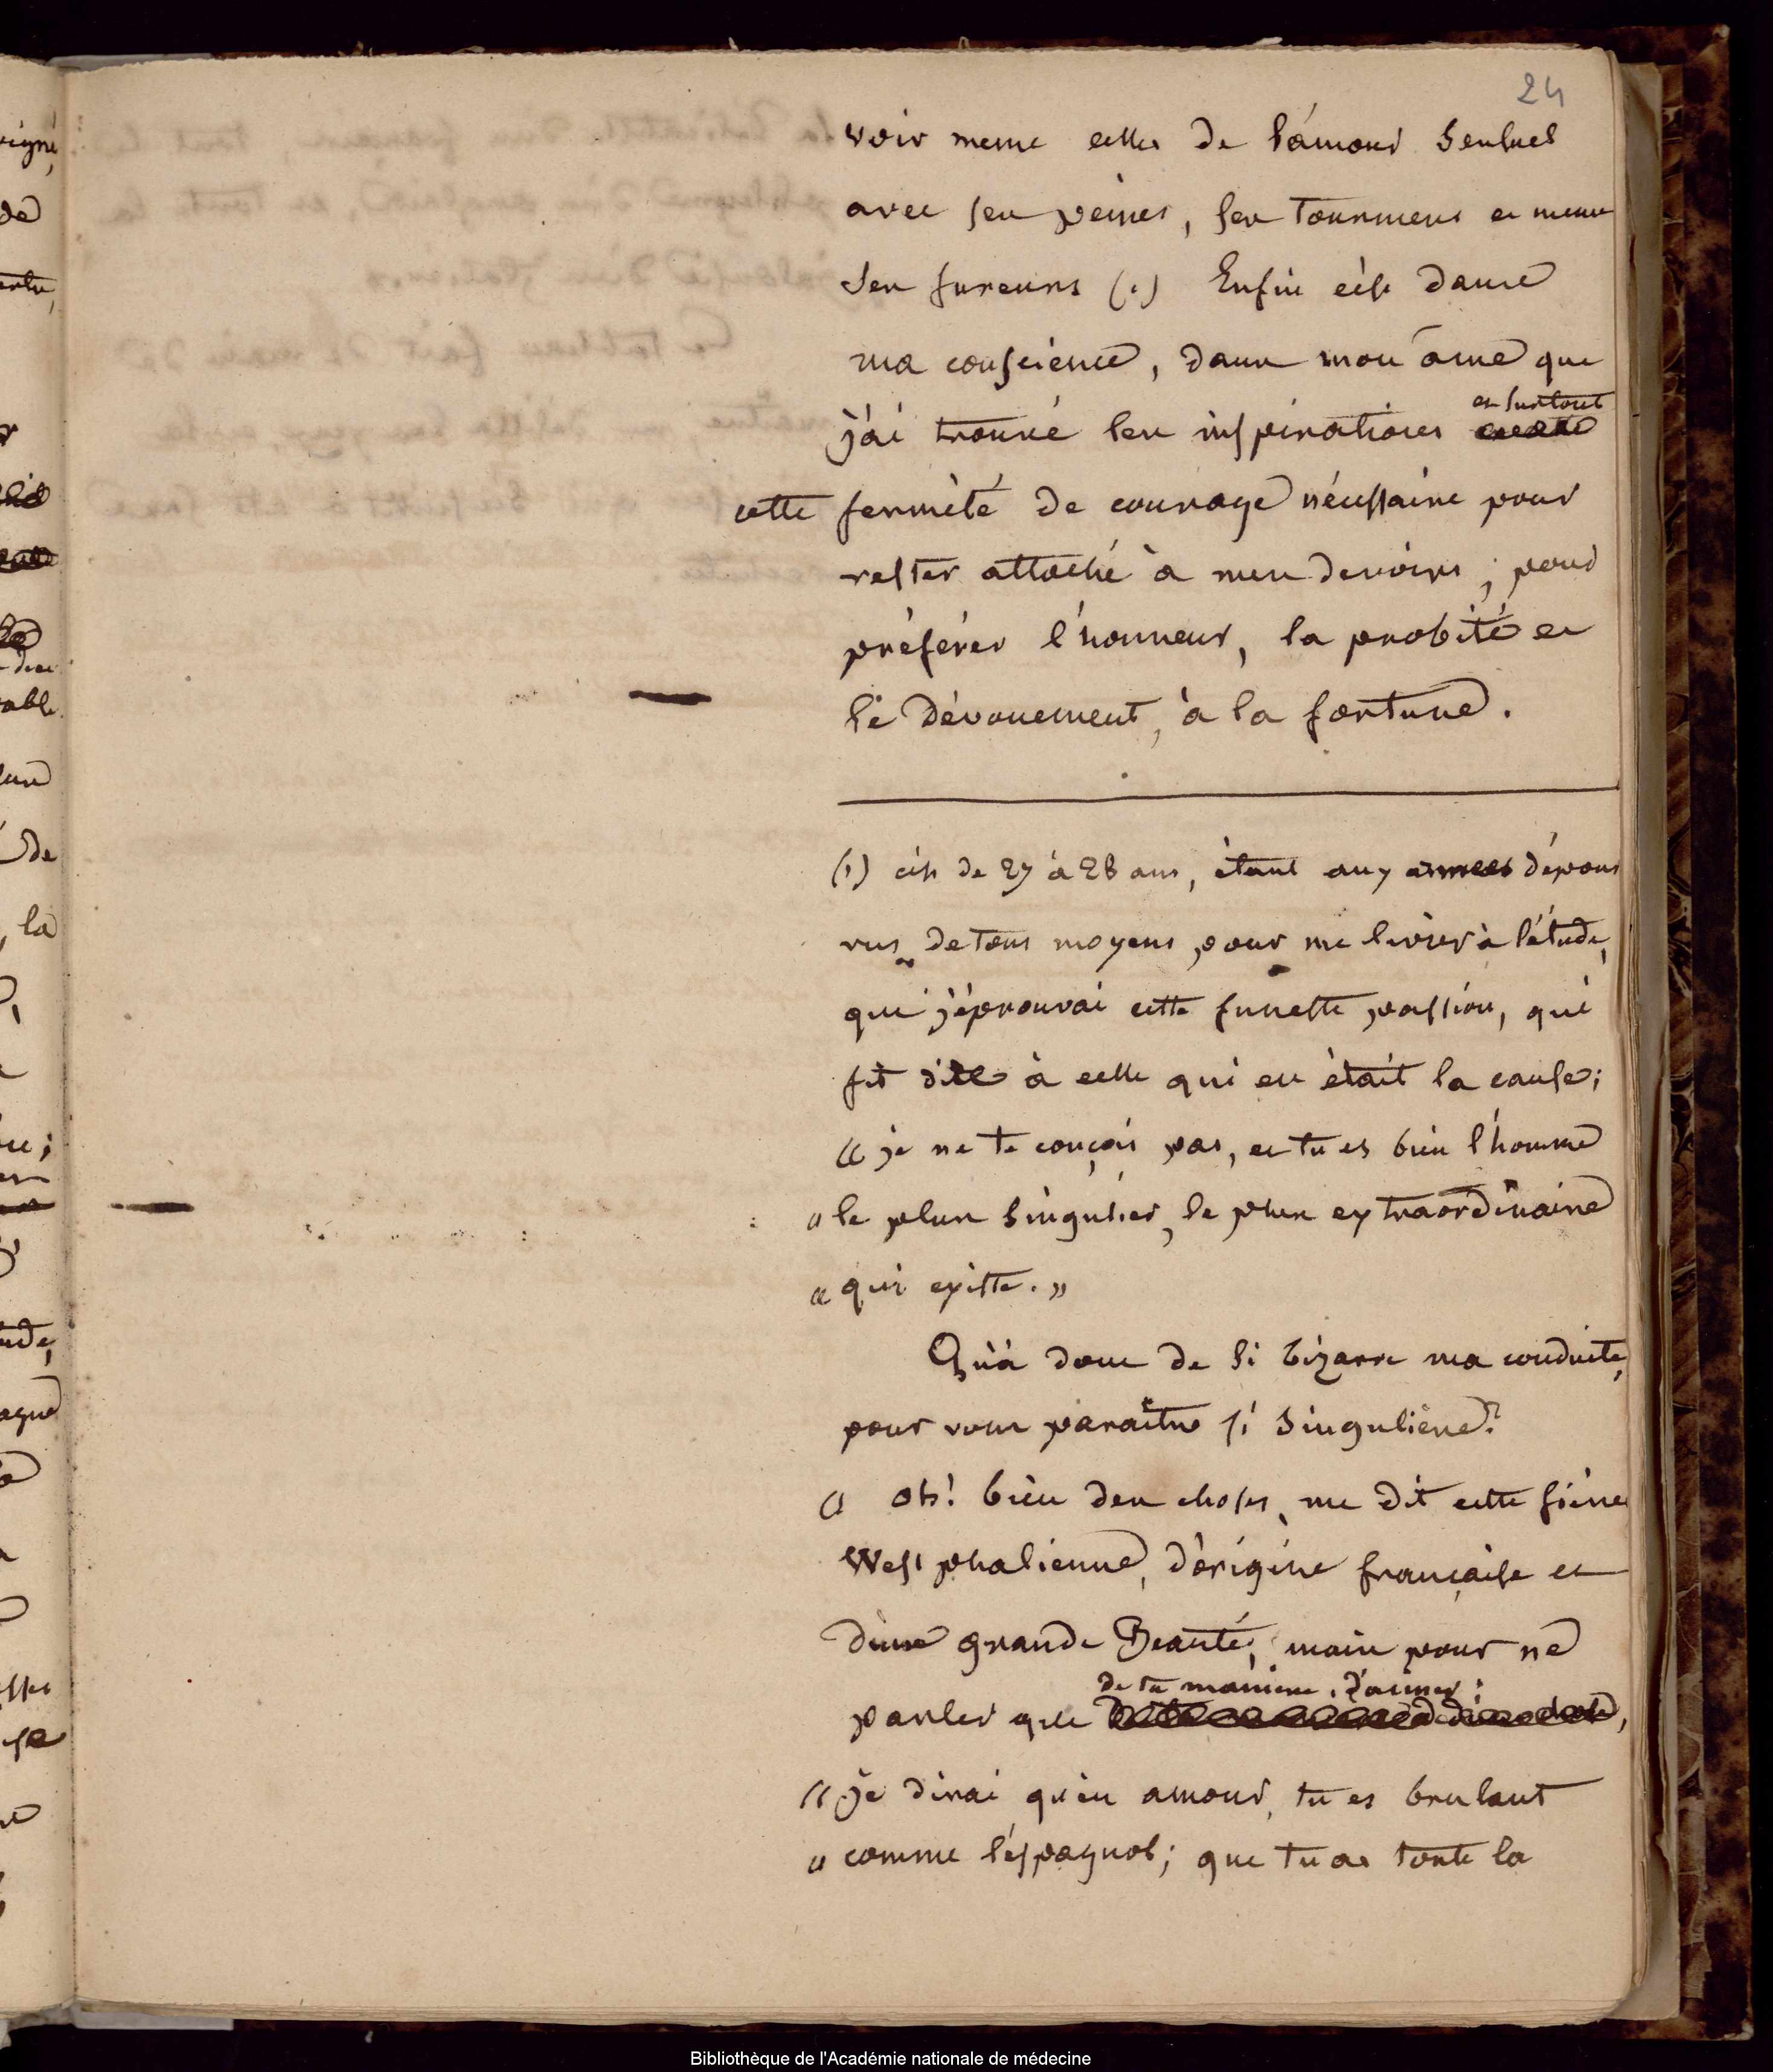 24
voir meme celles de l'amour sensuel
avec ses peines, ses tourmens et meme
ses fureurs (1) Enfin c'est dans
ma conscience, dans mon âme que
et surtout
j'ai trouvé les inspirations
cette fermeté de courage nécessaire pour
rester attaché à mes devoirs, pour
préférer l'honneur, la probité et
le dévouement, à la fortune.
(1) c'est de 27 à 28 ans, étant aux armées dépour
vus de tous moyens pour me livrer à l'étude,
que j'éprouvai cette funeste passion, qui
fit dire à celle qui en était la cause;
« je ne te conçois pas, et tu es bien l'homme
« le plus singulier, le plus extraordinaire
« qui existe. »
Qu'à donc de si bizarre ma conduite,
pour vous paraître si singulière?
« oh! bien des choses, me dit cette fière
Westphalienne, d'origine française et
d'une grande Beauté, mais pour ne
de ta manière d'aimer;
parler que
« je dirai qu'en amour, tu es brulant
« comme l'espagnol; que tu as toute la
Bibliothèque de l'Académie nationale de médecine